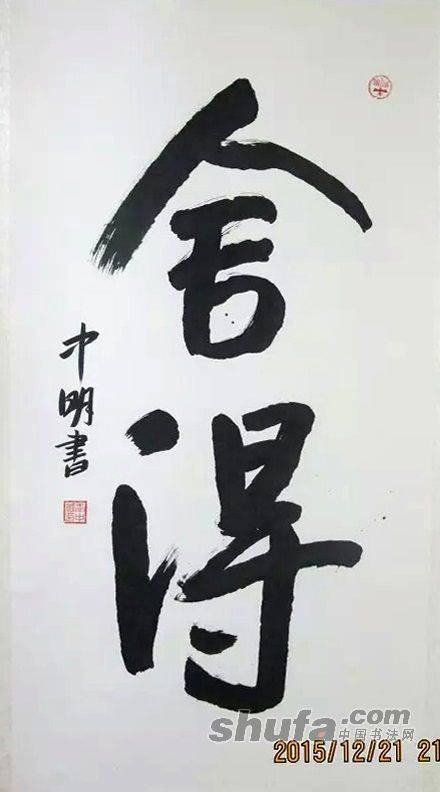 舍得
中明書
shufa.com
中国书法网
2015/12/21 21